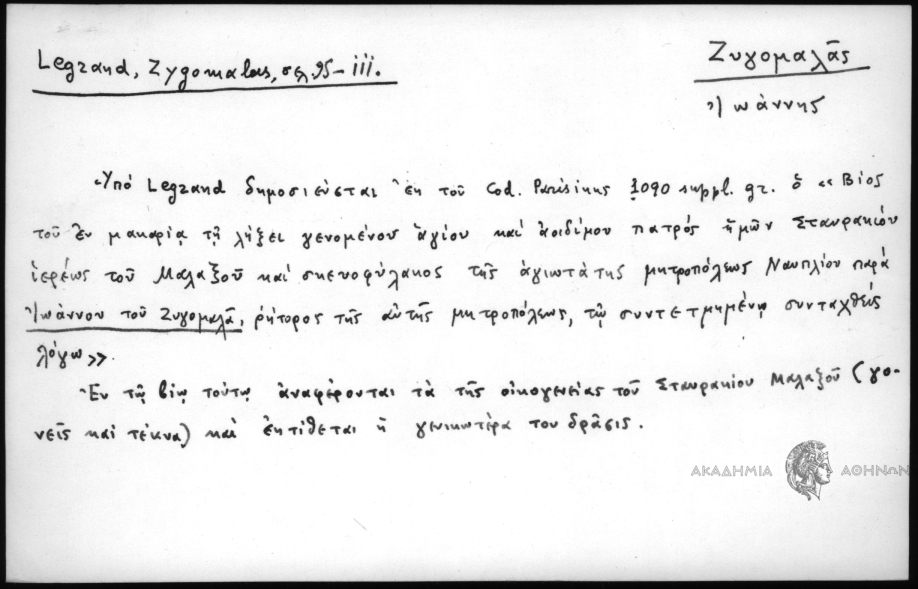 Legrand, Zygomalas, σελ. 95-111.
Ζυγομαλᾶς
Ἰωάννης
Ὑπό Legrand δημοσιεύεται ἐκ τοῦ Cod. Parisinus 1090 suppl. gr. ὁ «Βίος
τοῦ ἐν μακαρίᾳ τῇ λήξει γενομένου ἁγίου καί ἀοιδίμου πατρός ἡμῶν Σταυρακίου
ἱερέως τοῦ Μαλαξοῦ καί σκευοφύλακος τῆς ἁγιωτάτης μητροπόλεως Ναυπλίου παρά
Ἰωάννου τοῦ Ζυγομαλᾶ, ῥήτορος τῆς αὐτῆς μητροπόλεως, τῷ συντετμημένῳ συνταχθείς
λόγῳ».
Ἐν τῷ βίῳ τούτῳ ἀναφέρονται τά τῆς οἰκογενείας τοῦ Σταυρακίου Μαλαξοῦ (γο-
νεῖς καί τέκνα) καί ἐκτίθεται ἡ γενικωτέρα του δρᾶσις.
ΑΚΑΔΗΜΙΑ ΑΘΗΝΩΝ